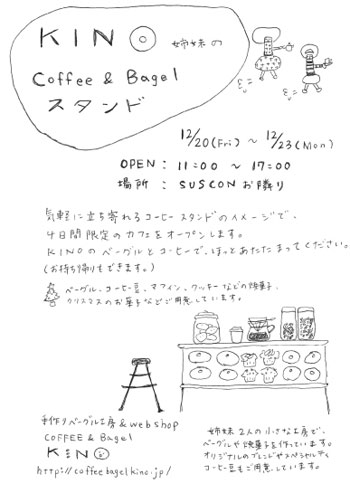 KINO 姉妹の
Coffee & Bagel
スタンド
12/20(Fri) 〜 12/23(Mon)
OPEN : 11:00 〜 17:00
場所 : SUSCONお隣り
気軽に立ち寄れるコーヒースタンドのイメージで、
4日間限定のカフェをオープンします。
KINOのベーグルとコーヒーで、ほっとあたたまってください。
(お持ち帰りもできます。)
ベーグル、コーヒー豆、マフィン、クッキーなどの焼菓子、
クリスマスのお菓子などご用意しています。
手作りベーグル工房 & web shop
COFFEE & BAgel
KINO
http://coffeebagelkino.jp/
姉妹2人の小さな工房で、
ベーグルや焼菓子を作っています。
オリジナルのブレンドやスペシャルティ
コーヒー豆もご用意しています。